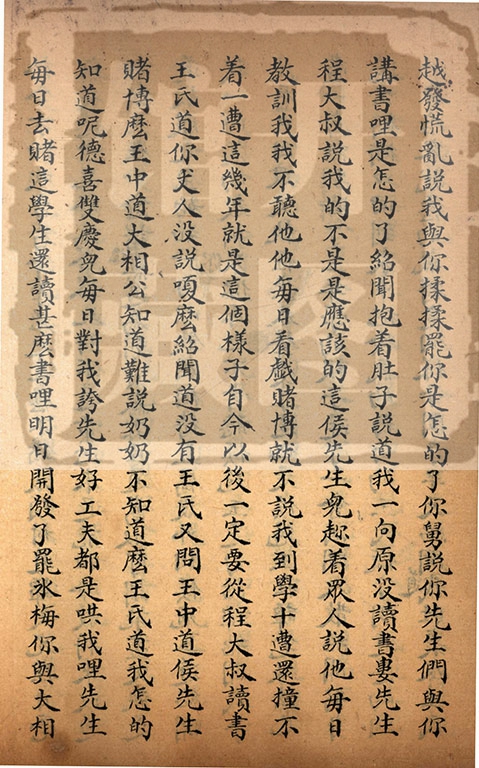 越發慌亂說我與你揉揉罷你是怎的了你舅說你先生們與你
講書哩是怎的了紹聞抱着肚子說道我一向原没讀書婁先生
程大叔說我的不是是應該的這侯先生皃趂着眾人說他每日
教訓我我不聽他他每日看戲賭博就不說我到學十遭還撞不
着一遭這幾年就是這個樣子自今以後一定要從程大叔讀書
王氏道你丈人没說嗄麽紹聞道没有王氏又問王中道侯先生
賭博麽王中道大相公知道難說奶奶不知道麽王氏道我怎的
知道呢德喜雙慶皃每日對我誇先生好工夫都是哄我哩先生
每日去賭這學生還讀甚麽書哩明日開發了罷氷梅你與大相